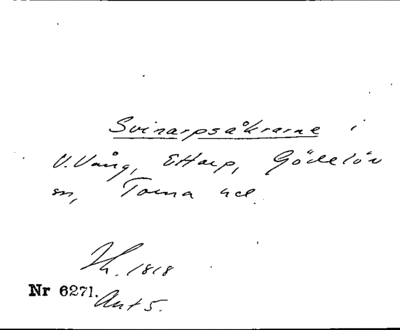 Svinarpsåkrarne i
V. Vång, Ettarp, Gödelöv
sn, Torna hd.
Sk. 1818
Nr 6271.
Akt 5.